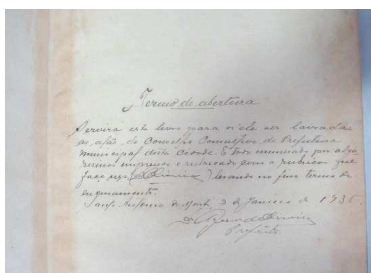 Termo de abertura
Servira este livro para n'elle ser lavradas
as actas do Conselho Consultivo da Prefeitura
municipal desta cidade. É todo numerado
e rubricado com a rubrica que
faço uso levando no fim termo de
encerramento.
Santo Antonio do Monte, 2 de Janeiro de 1936.
Prefeito